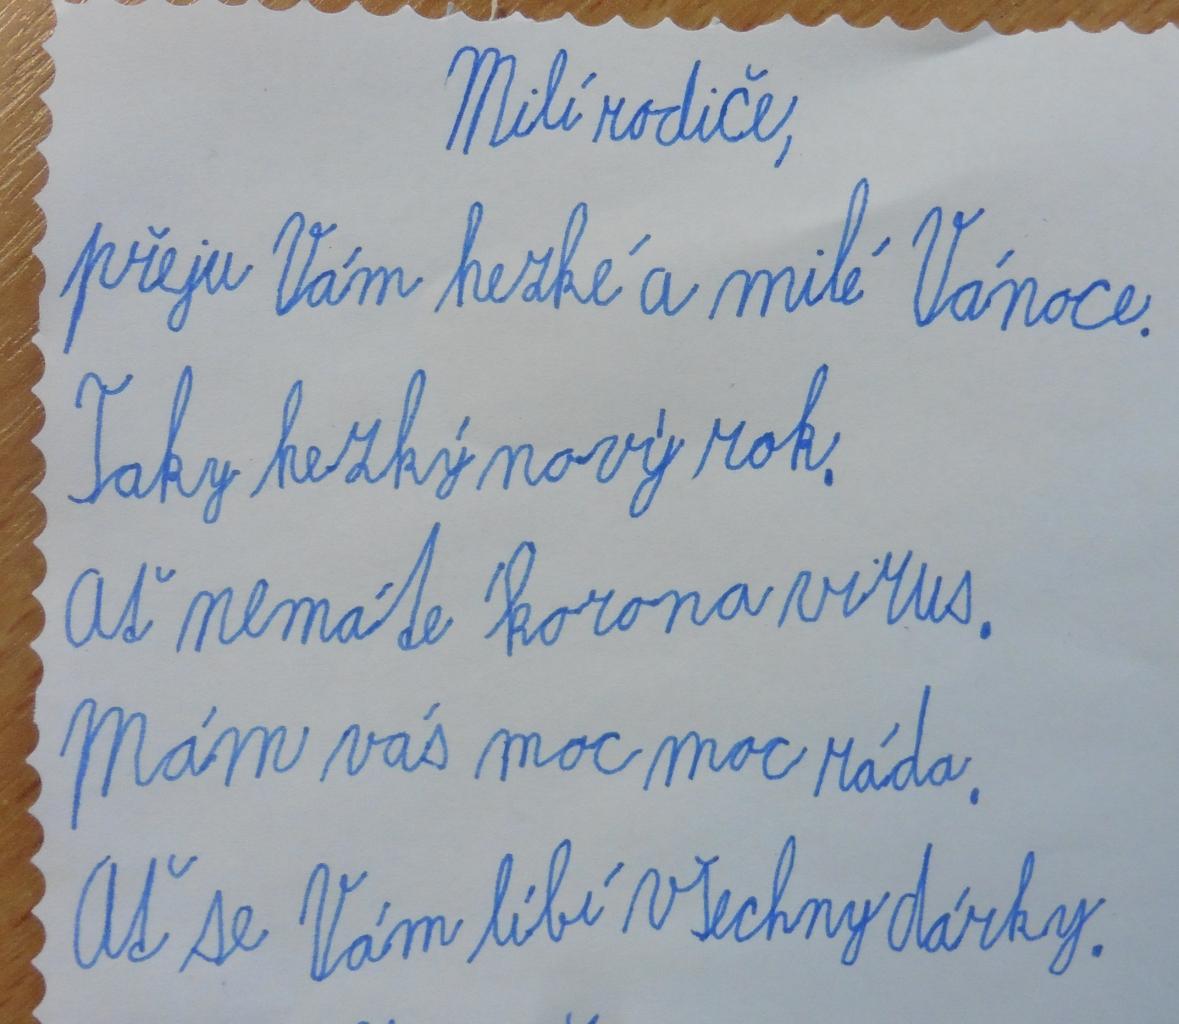 Milí rodiče,
přeju Vám hezké a milé Vánoce.
Taky hezký nový rok.
Ať nemáte korona virus.
Mám vás moc moc ráda.
Ať se Vám líbí všechny dárky.